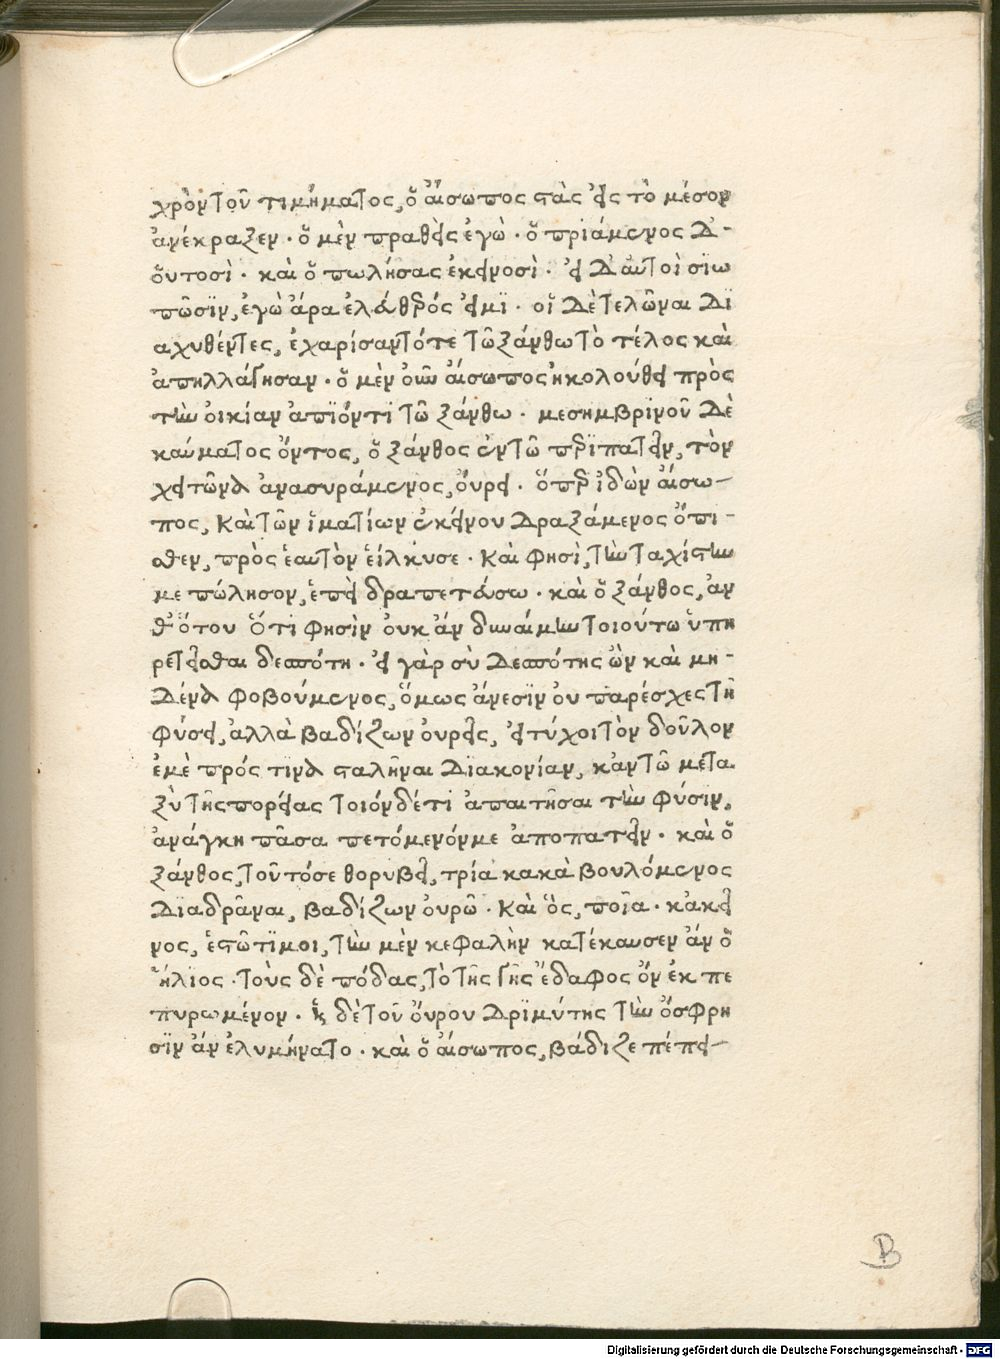 χρὸν τοῦ τιμήματος, ὁ αἴσωπος στὰς εἰς τὸ μέσον
ἀνέκραξεν · ὁ μὲν πραθεὶς ἐγὼ · ὁ πριάμενος δ᾽
οὑτοσὶ · καὶ ὁ πωλήσας ἐκεινοσὶ · εἰ δ᾽ αὐτοὶ σιω
πῶσϊν, ἐγὼ ἄρα ἐλεύθερός εἰμϊ · οἱ δὲ τελῶναι δϊ
αχυθέντες, ἐχαρίσαντό τε τῶ ξάνθω τὸ τέλος καὶ
ἀπηλλάγησαν · ὁ μὲν οὖν αἴσωπος ἠκολούθει πρὸς
τὴν οἰκίαν ἀπϊόντι τῶ ξάνθω · μεσημβρϊνοῦ δὲ
καύματος ὄντος, ὁ ξάνθος ἐν τῶ περϊπατεῖν, τὸν
χιτῶνα ἀνασυράμενος, οὔρει · ὅπερ ἰδὼν αἴσω-
πος, καὶ τῶν ἱματίων ἐκείνου δραξάμενος ὄπι-
σθεν, πρὸς ἑαυτὸν εἵλκυσε · καὶ φησὶ, τὴν ταχίστην
με πώλησον, ἐπεὶ δραπετεύσω · καὶ ὁ ξάνθος, ἀν
θ᾽ ὅτου ὅτι φησὶν οὐκ ἂν δυναίμην τοιούτω ὑπη
ρετεῖσθαι δεσπότη · εἰ γὰρ σὺ δεσπότης ὢν καὶ μη-
δένα φοβούμενος, ὅμως ἄνεσϊν οὐ παρέσχες τῆ
φύσει, ἀλλὰ βαδίζων οὐρεῖς, εἰ τύχοι τὸν δοῦλον
ἐμὲ πρός τινα σταλῆναι διακονίαν, κἀν τῶ μετα
ξὺ τῆς πορείας τοιόνδέ τι ἀπαιτῆσαι τὴν φύσϊν,
ἀνάγκη πᾶσα πετόμενόν με ἀποπατεῖν · καὶ ὁ
ξάνθος, τοῦτό σε θορυβεῖ, τρία κακὰ βουλόμενος
διαδρᾶναι, βαδίζων οὐρῶ · καὶ ὃς, ποῖα · κἀκεῖ
νος, ἑστῶτϊ μοι, τὴν μὲν κεφαλὴν κατέκαυσεν ἂν ὁ
ἥλιος · τοὺς δὲ πόδας, τὸ τῆς γῆς ἔδαφος ὂν ἐκπε
πυρωμένον · ἡ δὲ τοῦ οὔρου δρϊμύτης τὴν ὄσφρη
σϊν ἂν ἐλυμήνατο · καὶ ὁ αἴσωπος, βάδιζε πέπει-
B
Digitalisierung gefördert durch die Deutsche Forschungsgemeinschaft - DFG